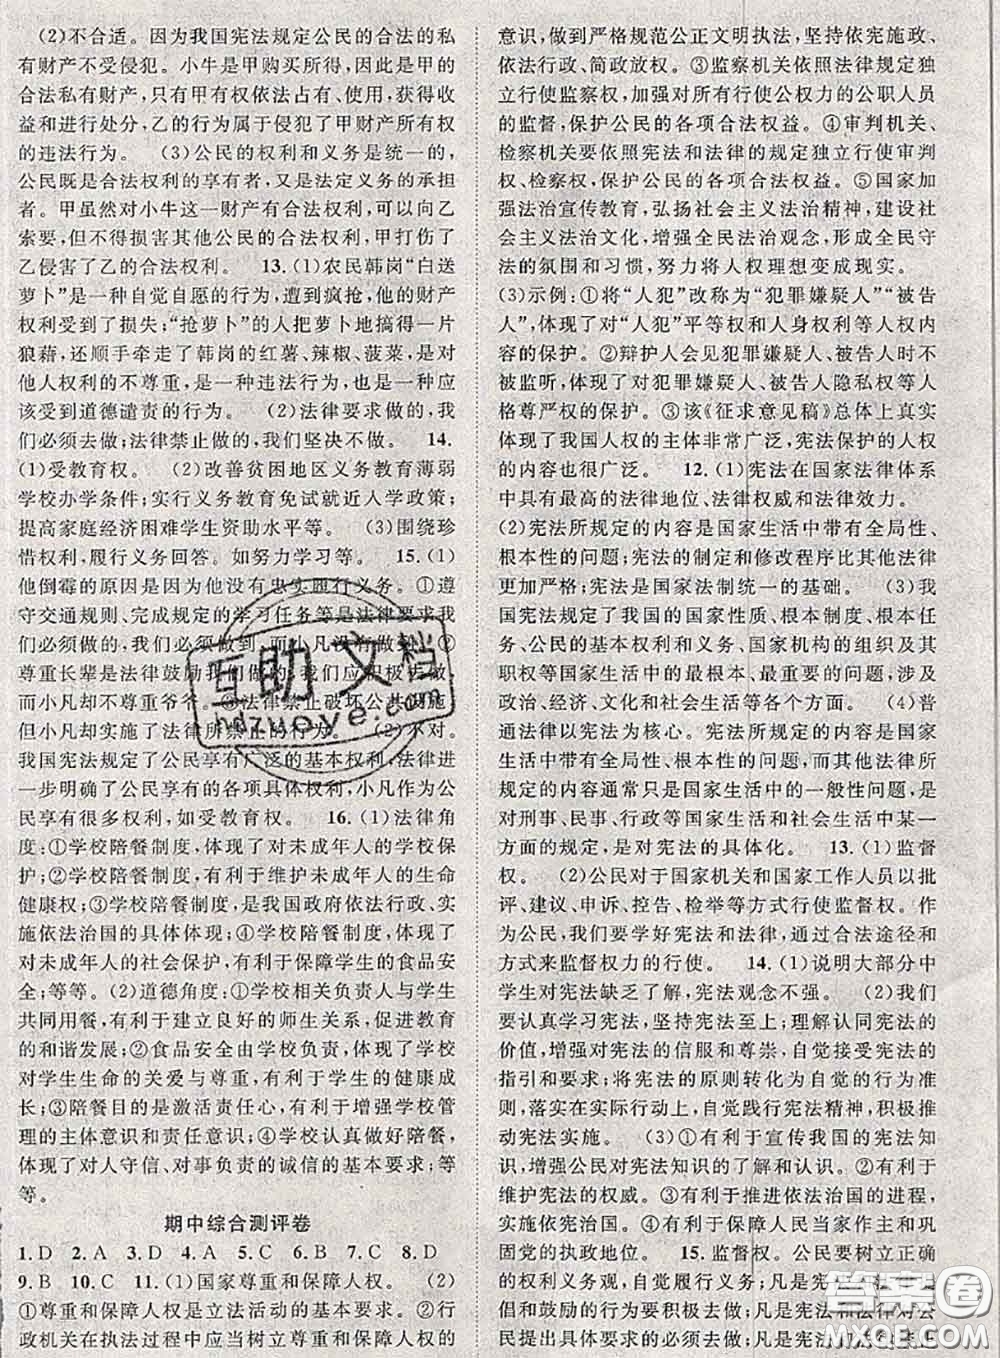 (2)不合适。因为我国宪法规定公民的合法的私
有财产不受侵犯。小牛是甲购买所得,因此是甲的
合法私有财产,只有甲有权依法占有、使用、获得收
益和进行处分,乙的行为侵犯了甲财产所有权
的违法行为。 (3)公民的权利和义务是统一的,
公民既是合法权利的享有者,又是法定义务的承担
者。甲虽然对小牛这一财产有合法权利,可以向乙
索要,但不得损害其他公民的合法权利,甲打伤了
乙侵害了乙的合法权利。 13.(1)农民韩岗“白送
萝卜”是一种自觉自愿的行为,遭到疯抢,他的财产
权利受到了损失;“抢萝卜”的人把萝卜地搞得一片
狼藉,还顺手牵走了韩岗的红薯、辣椒、菠菜,是对
他人权利的不尊重,是一种违法行为,也是一种应
该受到道德谴责的行为。 (2)法律要求做的,我
们必须去做;法律禁止做的,我们坚决不做。 14.
(1)受教育权。 (2)改善贫困地区义务教育薄弱
学校办学条件;实行义务教育免试就近入学政策;
提高家庭经济困难学生资助水平等。 (3)围绕珍
惜权利,履行义务回答。如努力学习等。 15.(1)
他倒霉的原因是因为他没有忠实履行义务。①遵
守交通规则、完成规定的学习任务等是法律要求我
们必须做的,我们必须做到,而小凡没有做到。②
尊重长辈是法律倡导我们做的,我们应积极去做,
而小凡却不尊重爷爷。③法律禁止破坏公共设施
但小凡却实施了法律所禁止的行为。 (2)不对。
我国宪法规定了公民享有广泛的基本权利,法律进
一步明确了公民享有的各项具体权利,小凡作为公
民享有很多权利,如受教育权。 16.(1)法律角
度:①学校陪餐制度,体现了对未成年人的学校保
护;②学校陪餐制度,有利于维护未成年人的生命
健康权;③学校陪餐制度,是我国政府依法行政、实
施依法治国的具体体现;④学校陪餐制度,体现了
对未成年人的社会保护,有利于保障学生的食品安
全;等等。(2)道德角度:①学校相关负责人与学生
共同用餐,有利于建立良好的师生关系,促进教育
的和谐发展;②食品安全由学校负责,体现了学校
对学生生命的关爱与尊重,有利于学生的健康成
长;③陪餐目的是激活责任心,有利于增强学校管
理的主体意识和责任意识;④学校认真做好陪餐,
体现了对人守信、对事负责的诚信的基本要求;等
等。
期中综合测评卷
1.D 2.A 3.D 4.A 5.C 6.B 7.C 8.D
9.B 10.C 11.(1)国家尊重和保障人权。 (2)
①尊重和保障人权是立法活动的基本要求。②行
政机关在执法过程中应当树立尊重和保障人权的
意识,做到严格规范公正文明执法,坚持依宪施政、
依法行政、简政放权。③监察机关依照法律规定
独立行使监察权,加强对所有行使公权力的公职人员
的监督,保护公民的各项合法权益。④审判机关、
检察机关要依照宪法和法律的规定独立行使审判
权、检察权,保护公民的各项合法权益。⑤国家加
强法治宣传教育,弘扬社会主义法治精神,建设社
会主义法治文化,增强全民法治观念,形成全民守
法的氛围和习惯,努力将人权理想变成现实。
(3)示例:①将“人犯”改称为“犯罪嫌疑人”“被告
人”,体现了对“人犯”平等权和人身权利等人权内
容的保护。②辩护人会见犯罪嫌疑人、被告人时不
被监听,体现了对犯罪嫌疑人、被告人隐私权等人
格尊严权的保护。③该《征求意见稿》总体上真实
体现了我国人权的主体非常广泛,宪法保护的人权
的内容也很广泛。 12.(1)宪法在国家法律体系
中具有最高的法律地位、法律权威和法律效力。
(2)宪法所规定的内容是国家生活中带有全局性、
根本性的问题;宪法的制定和修改程序比其他法律
更加严格;宪法是国家法制统一的基础。 (3)我
国宪法规定了我国的国家性质、根本制度、根本任
务、公民的基本权利和义务、国家机构的组织及其
职权等国家生活中的最根本、最重要的问题,涉及
政治、经济、文化和社会生活等各个方面。 (4)普
通法律以宪法为核心。宪法所规定的内容是国家
生活中带有全局性、根本性的问题,而其他法律所
规定的内容通常只是国家生活中的一般性问题,
是对刑事、民事、行政等国家生活和社会生活中某一
方面的规定,是对宪法的具体化。 13.(1)监督
权。 (2)公民对于国家机关和国家工作人员以
批评、建议、申诉、控告、检举等方式行使监督权。作
为公民,我们要学好宪法和法律,通过合法途径和
方式来监督权力的行使。 14.(1)说明大部分中
学生对宪法缺乏了解,宪法观念不强。 (2)我们
要认真学习宪法,坚持宪法至上;理解认同宪法的
价值,增强对宪法的信服和尊崇,自觉接受宪法的
指引和要求;将宪法的原则转化为自觉的行为准
则,落实在实际行动上,自觉践行宪法精神,积极推
动宪法实施。 (3)①有利于宣传我国的宪法知
识,增强公民对宪法知识的了解和认识。②有利于
维护宪法的权威。③有利于推进依法治国的进程,
实施依宪治国。④有利于保障人民当家作主和巩
固党的执政地位。 15.监督权。公民要树立正确
的权利义务观,自觉履行义务;凡是宪法和法律提
倡和鼓励的行为要积极去做;凡是宪法和法律对公
民提出具体要求的必须去做;凡是宪法和法律
互助文档
hdzuoye.com
答案圈
MXQE.COM